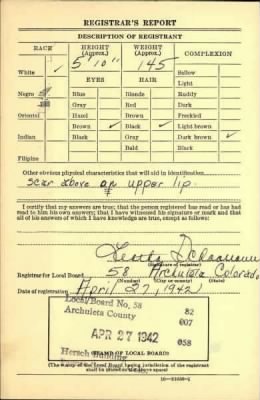 REGISTRAR'S REPORT
DESCRIPTION OF REGISTRANT
RACE HEIGHT (Approx.) WEIGHT (Approx.) COMPLEXION
5' 10" 145
White Sallow
EYES HAIR Light
Negro Blue Blonde Ruddy
Gray Red Dark
Oriental Hazel Brown Freckled
Brown ✓ Black ✓ Light brown
Indian Black Gray Dark brown ✓
Bald Black
Filipino
Other obvious physical characteristics that will aid in identification
Scar above on upper lip
I certify that my answers are true; that the person registered has read or has had
read to him his own answers; that I have witnessed his signature or mark and that
all of his answers of which I have knowledge are true, except as follows:
Registrar for Local Board 58 Archuleta Colorado
(Number) (City or county) (State)
Date of registration April 27, 1942
Local Board No. 58 82
Archuleta County 007
APR 27 1942 058
Hersch Building
(STAMP OF LOCAL BOARD)
(The stamp of the Local Board having jurisdiction of the registrant
shall be placed in the above space)